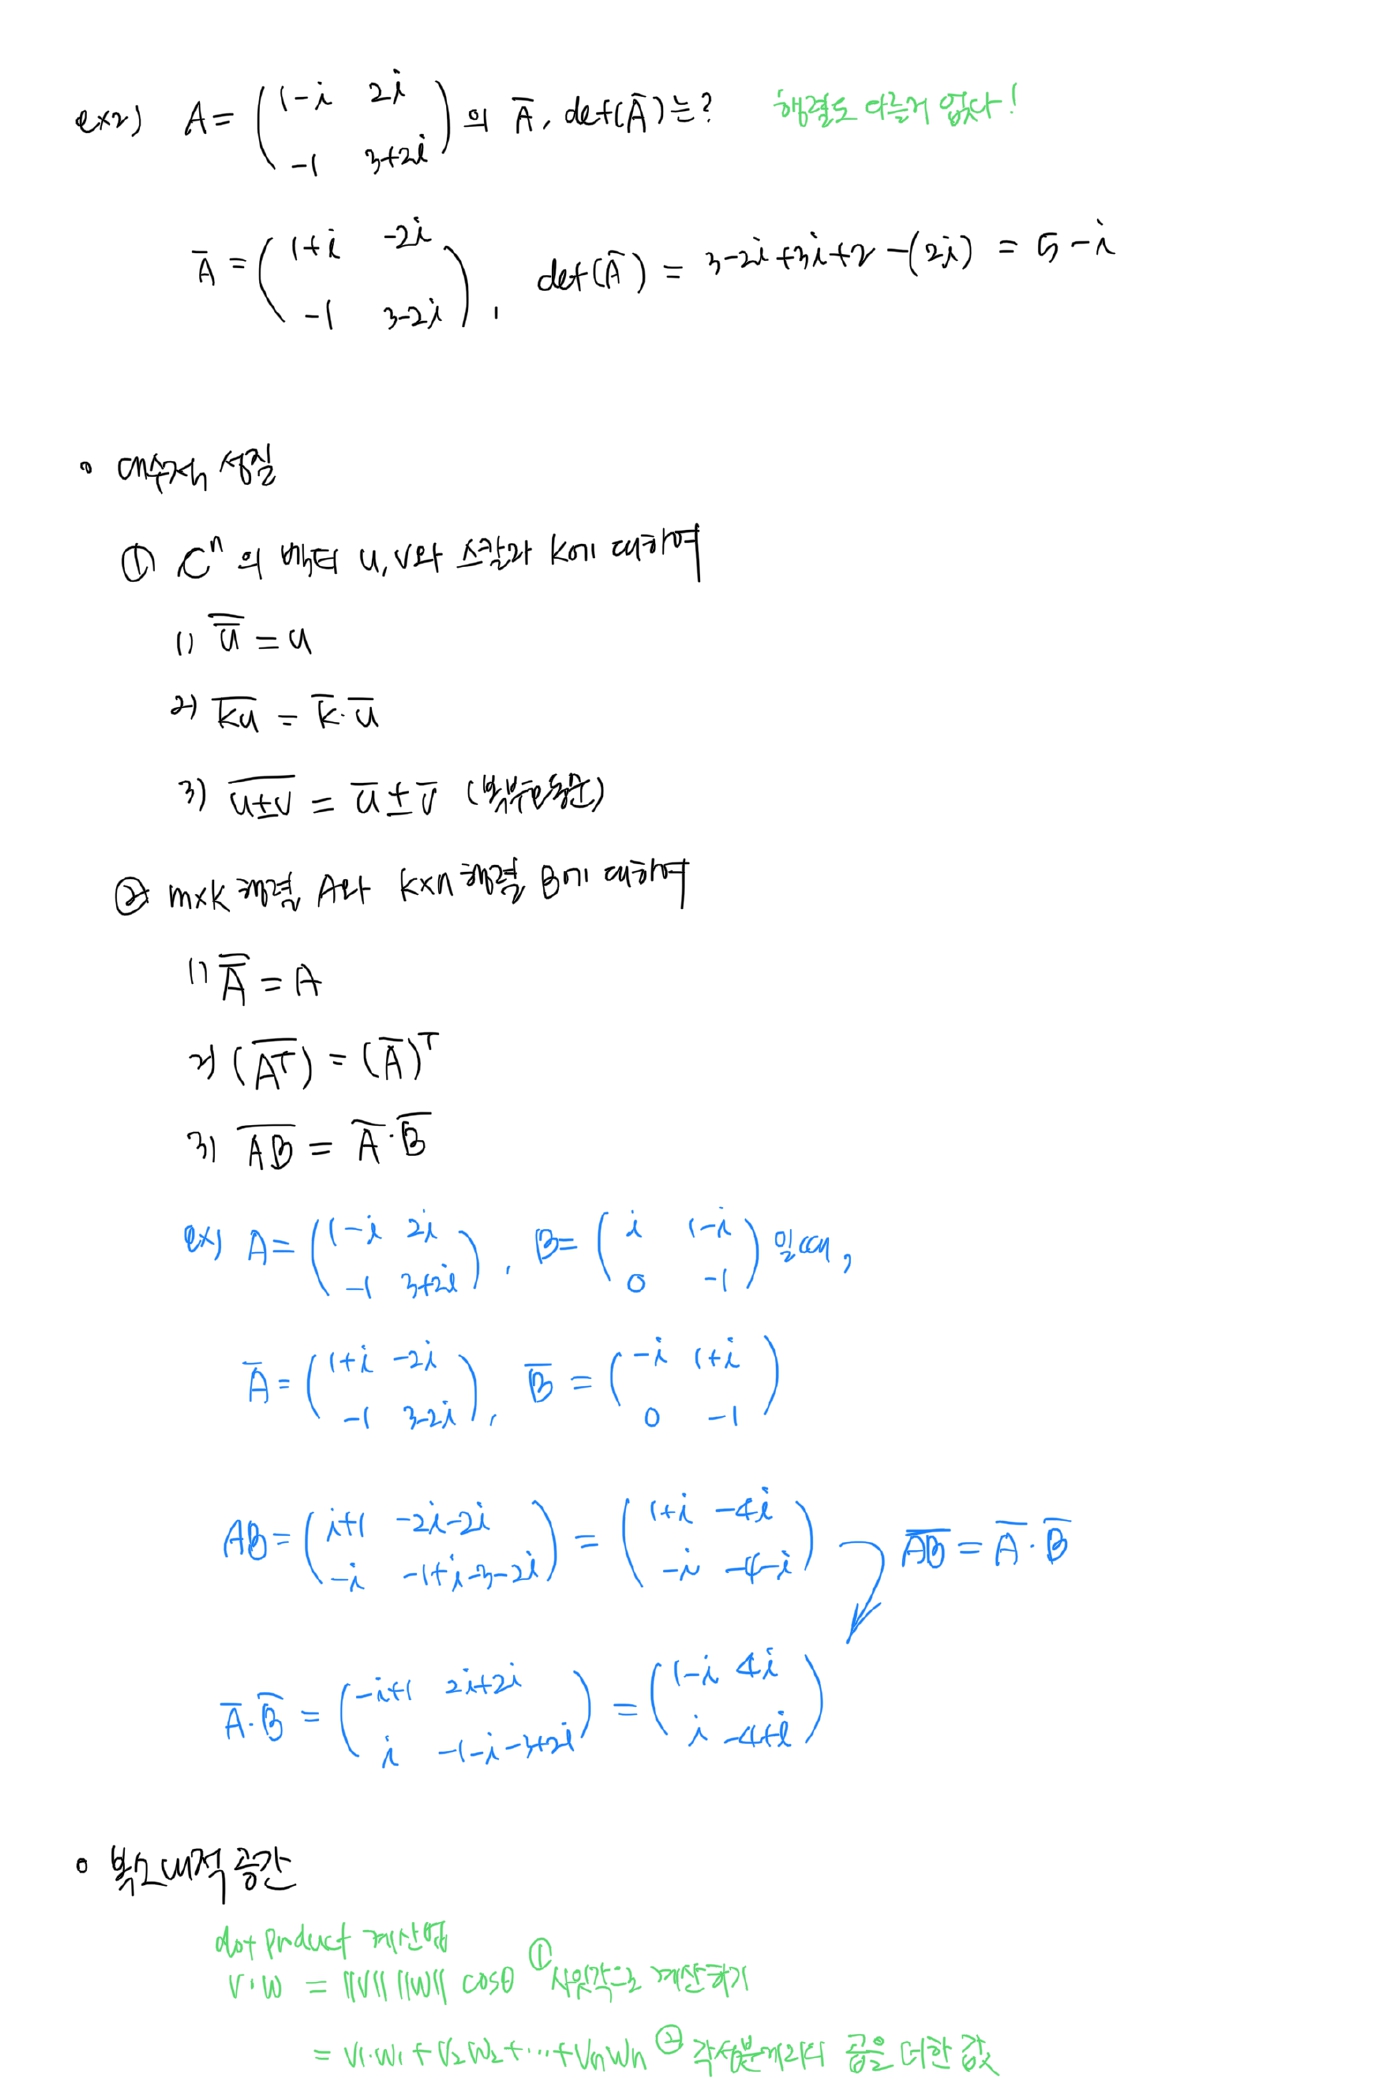 ex2) A = ( 1-i 2i ) 의 Ā, det(Ā)는? 행렬도 다를거 없다!
-1 3+2i
Ā = ( 1+i -2i ), det(Ā) = 3-2i+3i+2-(2i) = 5-i
-1 3-2i
• 대수적 성질
① Cⁿ의 벡터 u,v와 스칼라 k에 대하여
1) u̿ = u
2) k̅u̅ = k̅·u̅
3) u̅±̅v̅ = u̅±v̅ (복부호동순)
② m×k 행렬 A와 k×n 행렬 B에 대하여
1) A̿ = A
2) (A̅ᵀ̅) = (A̅)ᵀ
3) A̅B̅ = A̅·B̅
ex) A = ( 1-i 2i ), B = ( i 1-i ) 일때,
-1 3+2i 0 -1
A̅ = ( 1+i -2i ), B̅ = ( -i 1+i )
-1 3-2i 0 -1
AB = ( i+1 -2i-2i ) = ( 1+i -4i ) A̅B̅ = A̅·B̅
-i -1+i-3-2i -i -4-i
A̅·B̅ = ( -i+1 2i+2i ) = ( 1-i 4i )
i -1-i-3+2i i -4+i
• 복소내적공간
dot product 계산법
v·w = ||v|| ||w|| cosθ ① 사잇각으로 계산하기
= v₁·w₁+v₂w₂+⋯+vₙwₙ ② 각 성분끼리의 곱을 더한 값